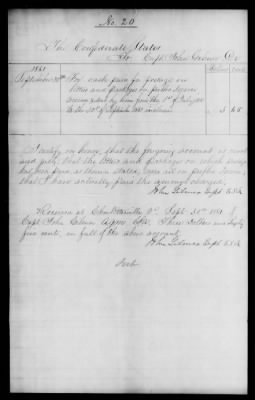 No. 20
The Confederate States
To Capt John Dr
Dollars Cents
1861
September 30th For cash paid for postage on
letters and packages on public service
by him from the 1st of July 1861
to the 30th of September 1861 inclusive
I certify on honor that the foregoing account is correct
and just, that the letters and packages on which postage
has been paid as therein stated, were all on public service,
that I have actually paid the amount charged.
John Capt C.S.A.
Received at Charlottesville Va Sept 30th 1861 of
Capt John CSA Dollars and
five cents, in full of the above account.
John Capt C.S.A.